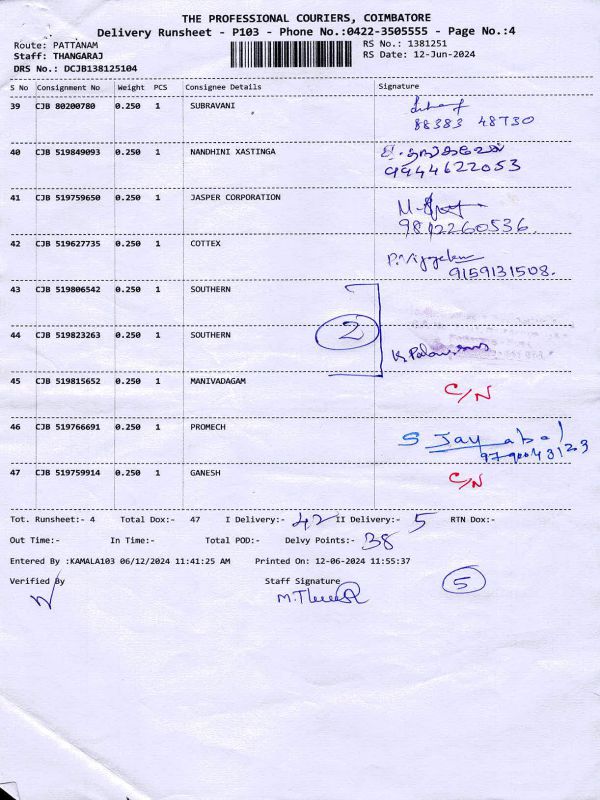 THE PROFESSIONAL COURIERS, COIMBATORE
Delivery Runsheet - P103 - Phone No.:0422-3505555 - Page No.:4
Route: PATTANAM RS No.: 1381251
Staff: THANGARAJ RS Date: 12-Jun-2024
DRS No.: DCJB138125104
S No Consignment No Weight PCS Consignee Details Signature
39 CJB 80200780 0.250 1 SUBRAVANI
88383 48730
40 CJB 519849093 0.250 1 NANDHINI XASTINGA
9944622053
41 CJB 519759650 0.250 1 JASPER CORPORATION
9812260536.
42 CJB 519627735 0.250 1 COTTEX P. Vijayakumar
9159131508.
43 CJB 519806542 0.250 1 SOUTHERN
2
44 CJB 519823263 0.250 1 SOUTHERN
45 CJB 519815652 0.250 1 MANIVADAGAM C/N
46 CJB 519766691 0.250 1 PROMECH S Jayabal
9790043123
47 CJB 519759914 0.250 1 GANESH C/N
Tot. Runsheet:- 4 Total Dox:- 47 I Delivery:- 42 II Delivery:- 5 RTN Dox:-
Out Time:- In Time:- Total POD:- Delvy Points:- 38
Entered By :KAMALA103 06/12/2024 11:41:25 AM Printed On: 12-06-2024 11:55:37
Verified By Staff Signature 5